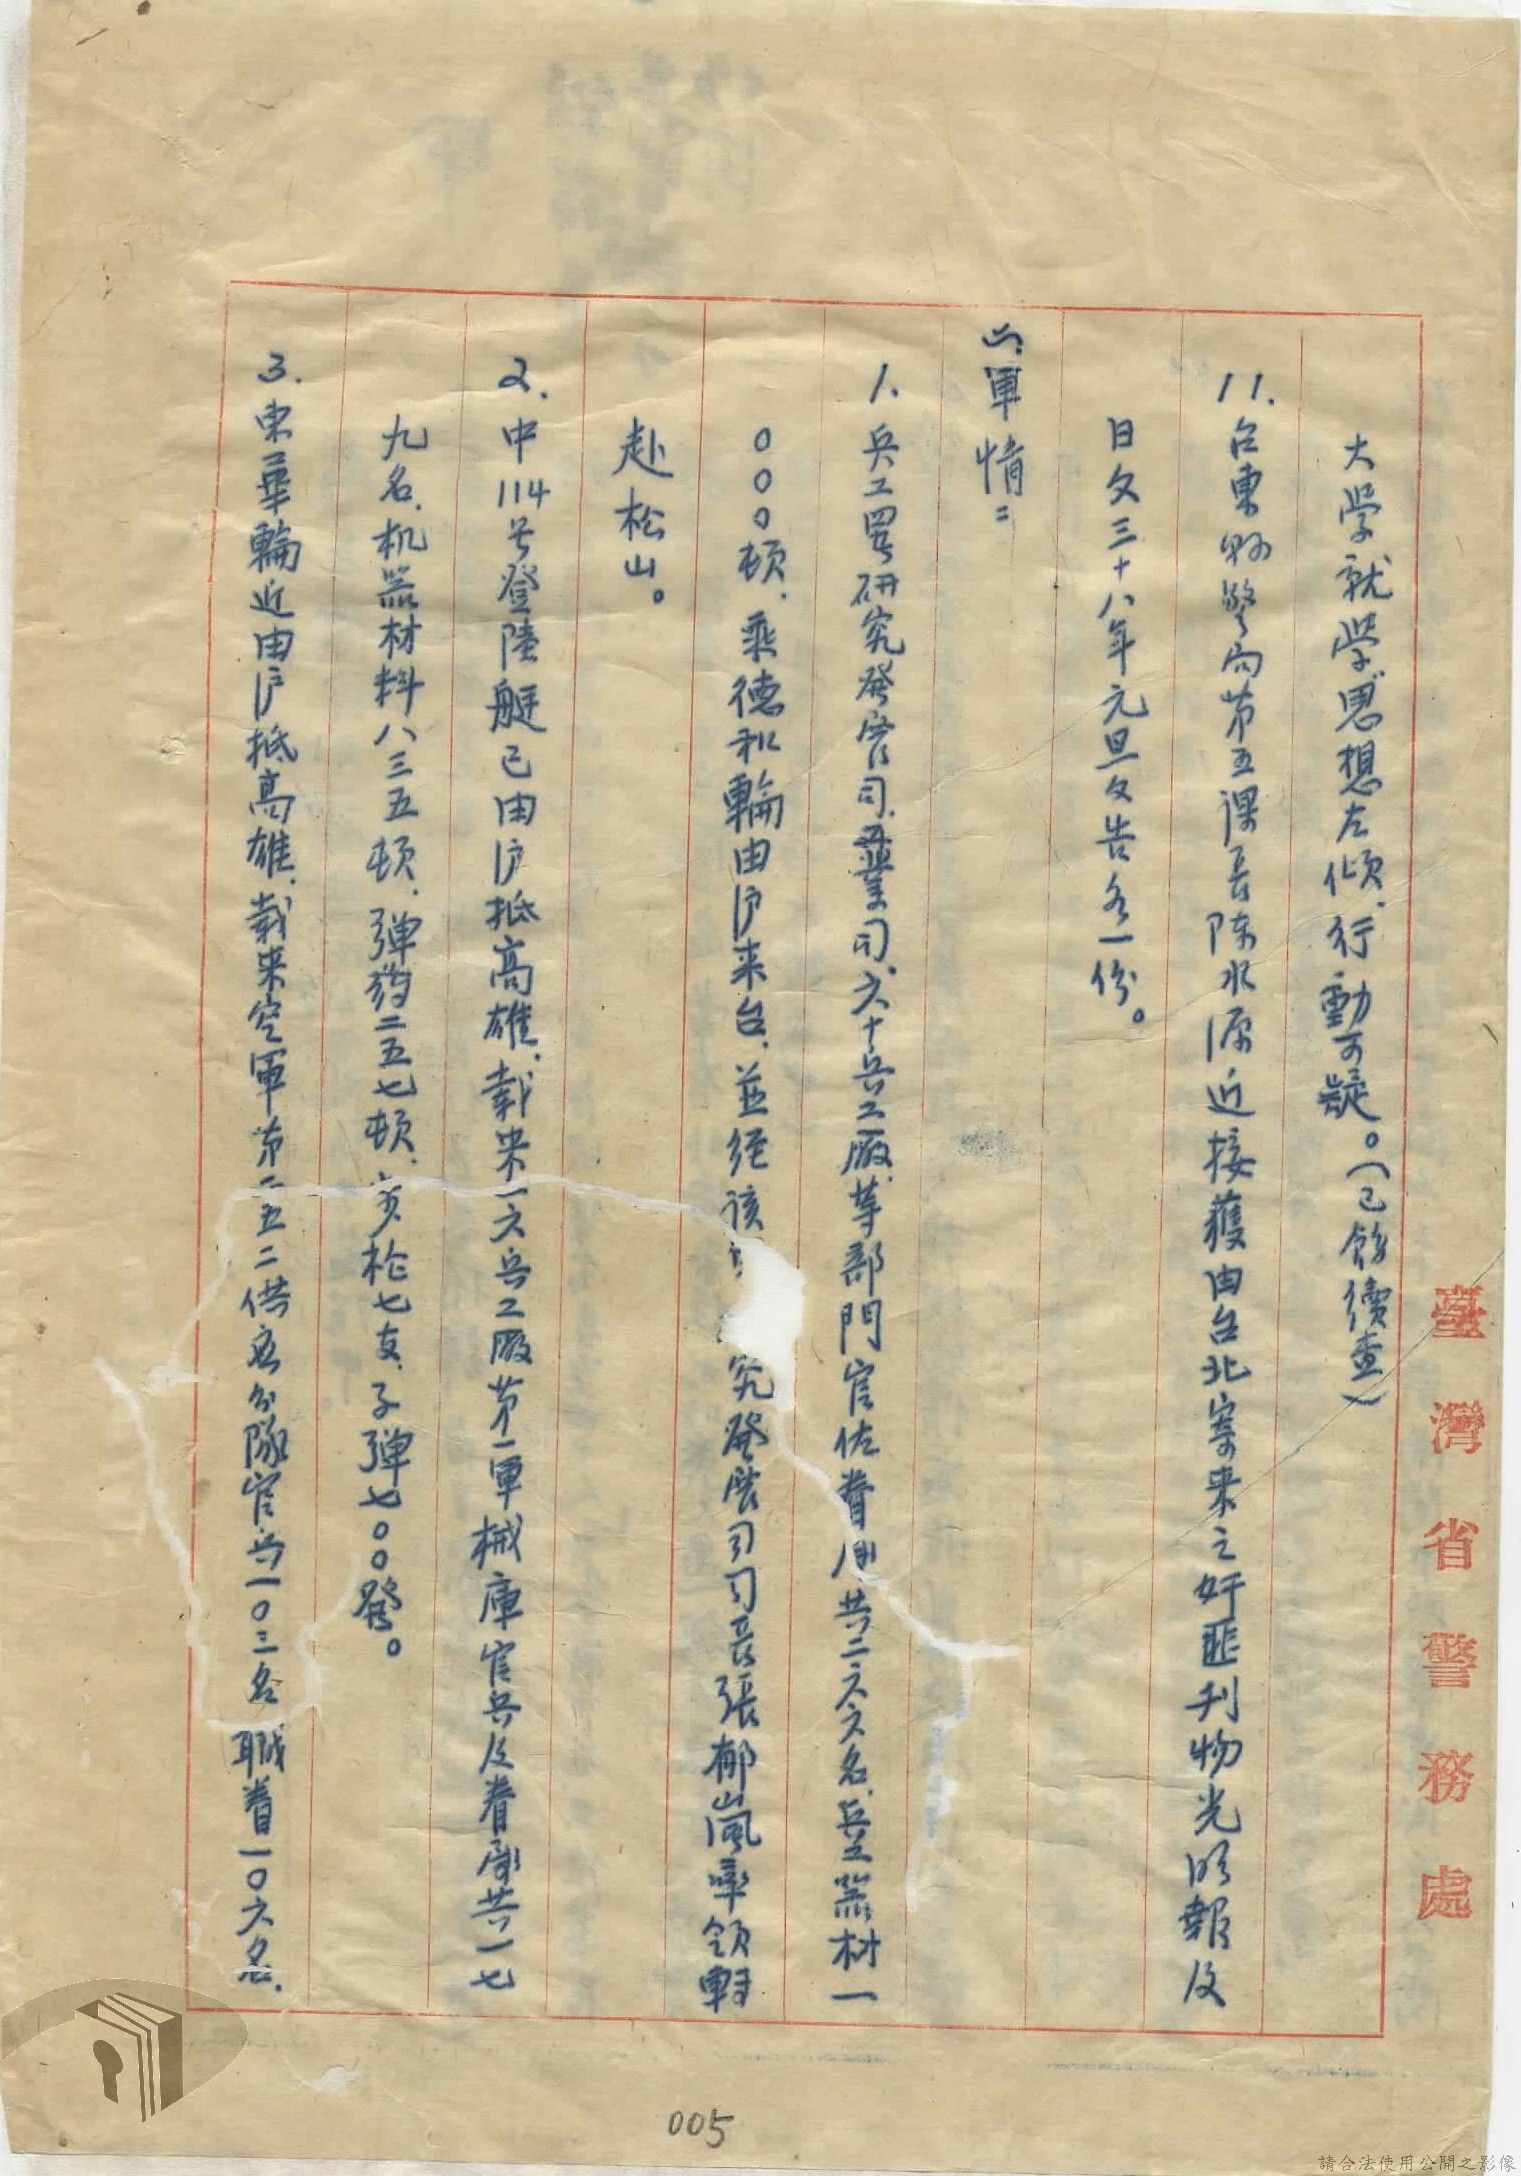 臺灣省警務處
大学就学思想左傾、行動可疑。(已飭續查)
11.台東縣警局第五課長陈水源近接獲由台北寄来之奸匪刊物光明報及
日文三十八年元旦文告各一份。
六軍情：
1、兵工署研究發展司、業司、六十兵工廠等部門官佐眷共二六六名、兵工器材一
〇〇〇頓、乘德和輪由沪来台、並经该究發展司司長張郁嵐率領轉
赴松山。
2、中114号登陸艇已由沪抵高雄、載来一六兵工廠第一軍械庫官兵及眷屬共一七
九名、机器材料八三五頓、弹药二五七頓、步枪七支、子弹七〇〇發。
3.東華輪近由沪抵高雄、載来空軍第二五二供应分隊官兵一〇三名職眷一〇六名、
005
請合法使用公開之影像